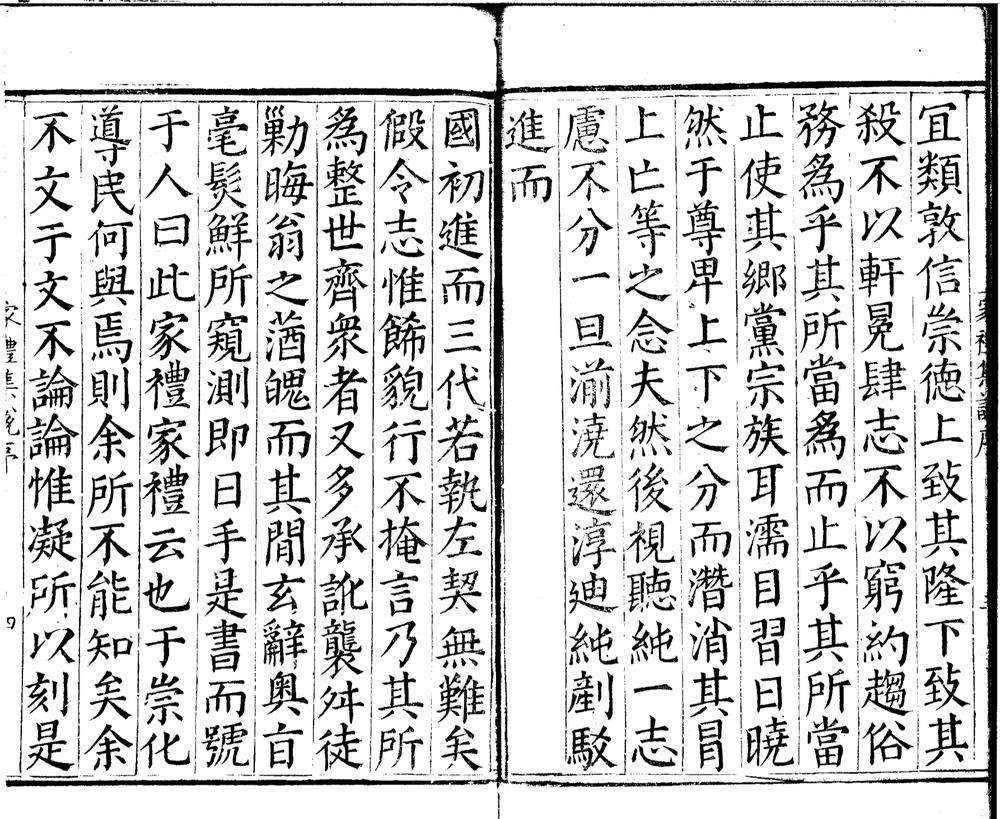 冝類敦信崇德上致其隆下致其
殺不以軒冕肆志不以窮約趨俗
務為乎其所當為而止乎其所當
止使其鄉黨宗族耳濡目習日曉
然于尊卑上下之分而潛消其冒
上亡等之念夫然後視聽純一志
慮不分一旦湔澆還淳廸純剷駁
進而
國初進而三代若執左契無難矣
假令志惟餙貌行不掩言乃其所
為整世齊衆者又多承訛襲舛徒
勦晦翁之蕕魄而其間玄辭奥㫖
毫髮鮮所窺測即日手是書而號
于人曰此家禮家禮云也于崇化
導民何與焉則余所不能知矣余
不文于文不論論惟凝所以刻是
家禮集說序
四